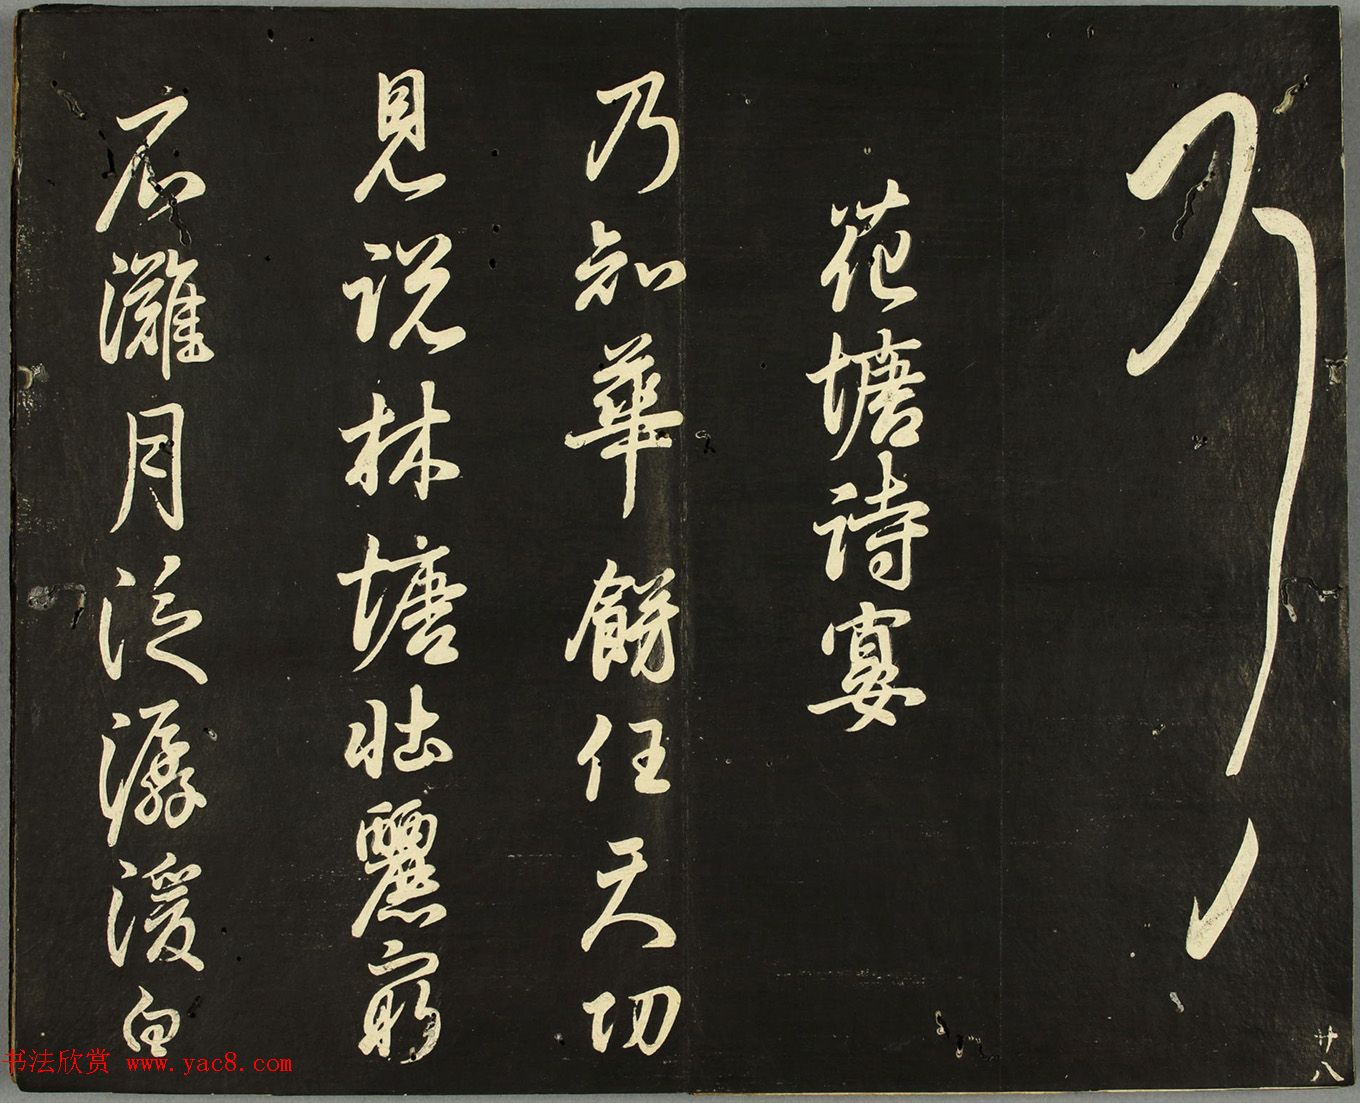 花塘詩宴
乃知華餝任天功
見說林塘壯麗窮
灘月泛潺湲白
廿八
书法欣赏 www.yac8.com